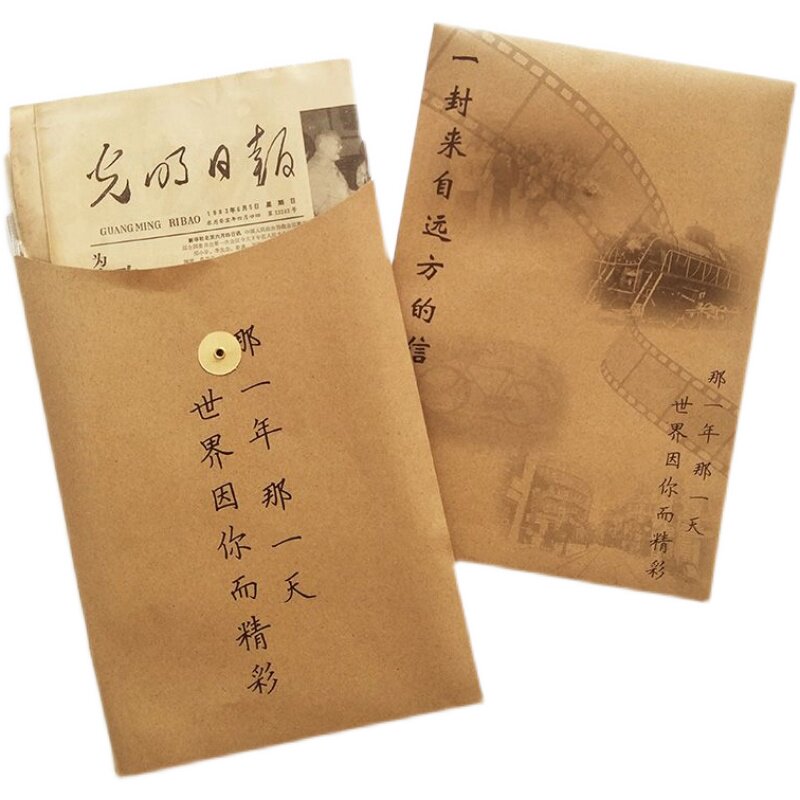 光明日报
GUANGMING RIBAO
1983年6月5日 星期日
为
那一年 那一天
世界因你而精彩
一封来自远方的信
那一年 那一天
世界因你而精彩